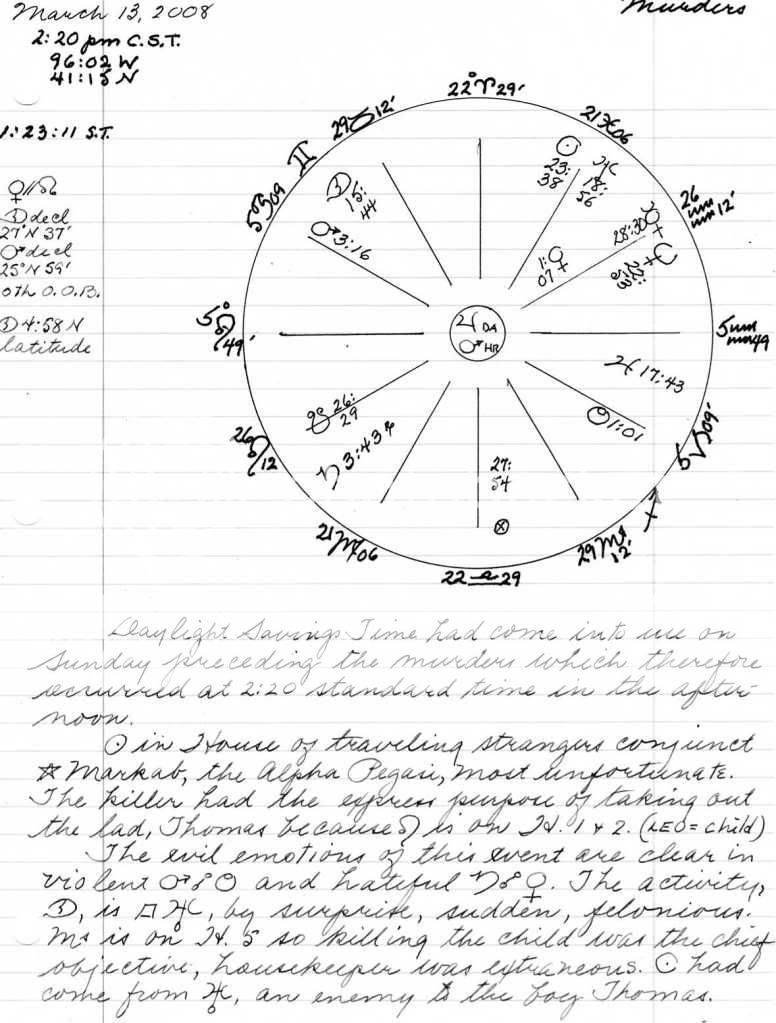 March 13, 2008
Murders
2:20 pm C.S.T.
96:02 W
41:15 N
1:23:11 S.T.
♀∥☊
☽ decl
27°N 37'
♂ decl
25°N 59'
oth O.O.B.
☽ 4:58 N
latitude
22°♈29'
21♓06
26♒12'
5♒49
5♑09'
♐
29♏12'
22♎29
21♍06
26♌12
5°♌49'
5♋09
♊
29♉12'
☉ 23:38
♅ 18:56
28:30
1:07 ♀
☽ 15:44
♂ 3:16
♃ DA
♂ HR
♃ 17:43
1:01
26:29
♄ 3:43 ℞
27:54
⊗
Daylight Savings Time had come into use on
Sunday preceding the murders which therefore
occurred at 2:20 standard time in the after-
noon.
☉ in House of traveling strangers conjunct
☆ Markab, the Alpha Pegasi, most unfortunate.
The killer had the express purpose of taking out
the lad, Thomas because ♌ is on H. 1 & 2. (LEO = child)
The evil emotions of this event are clear in
violent ♂☍♇ and hateful ♄☍♀. The activity,
☽, is □ ♅, by surprise, sudden, felonious.
♏ is on H. 5 so killing the child was the chief
objective, housekeeper was extraneous. ☾ had
come from ♅, an enemy to the boy Thomas.